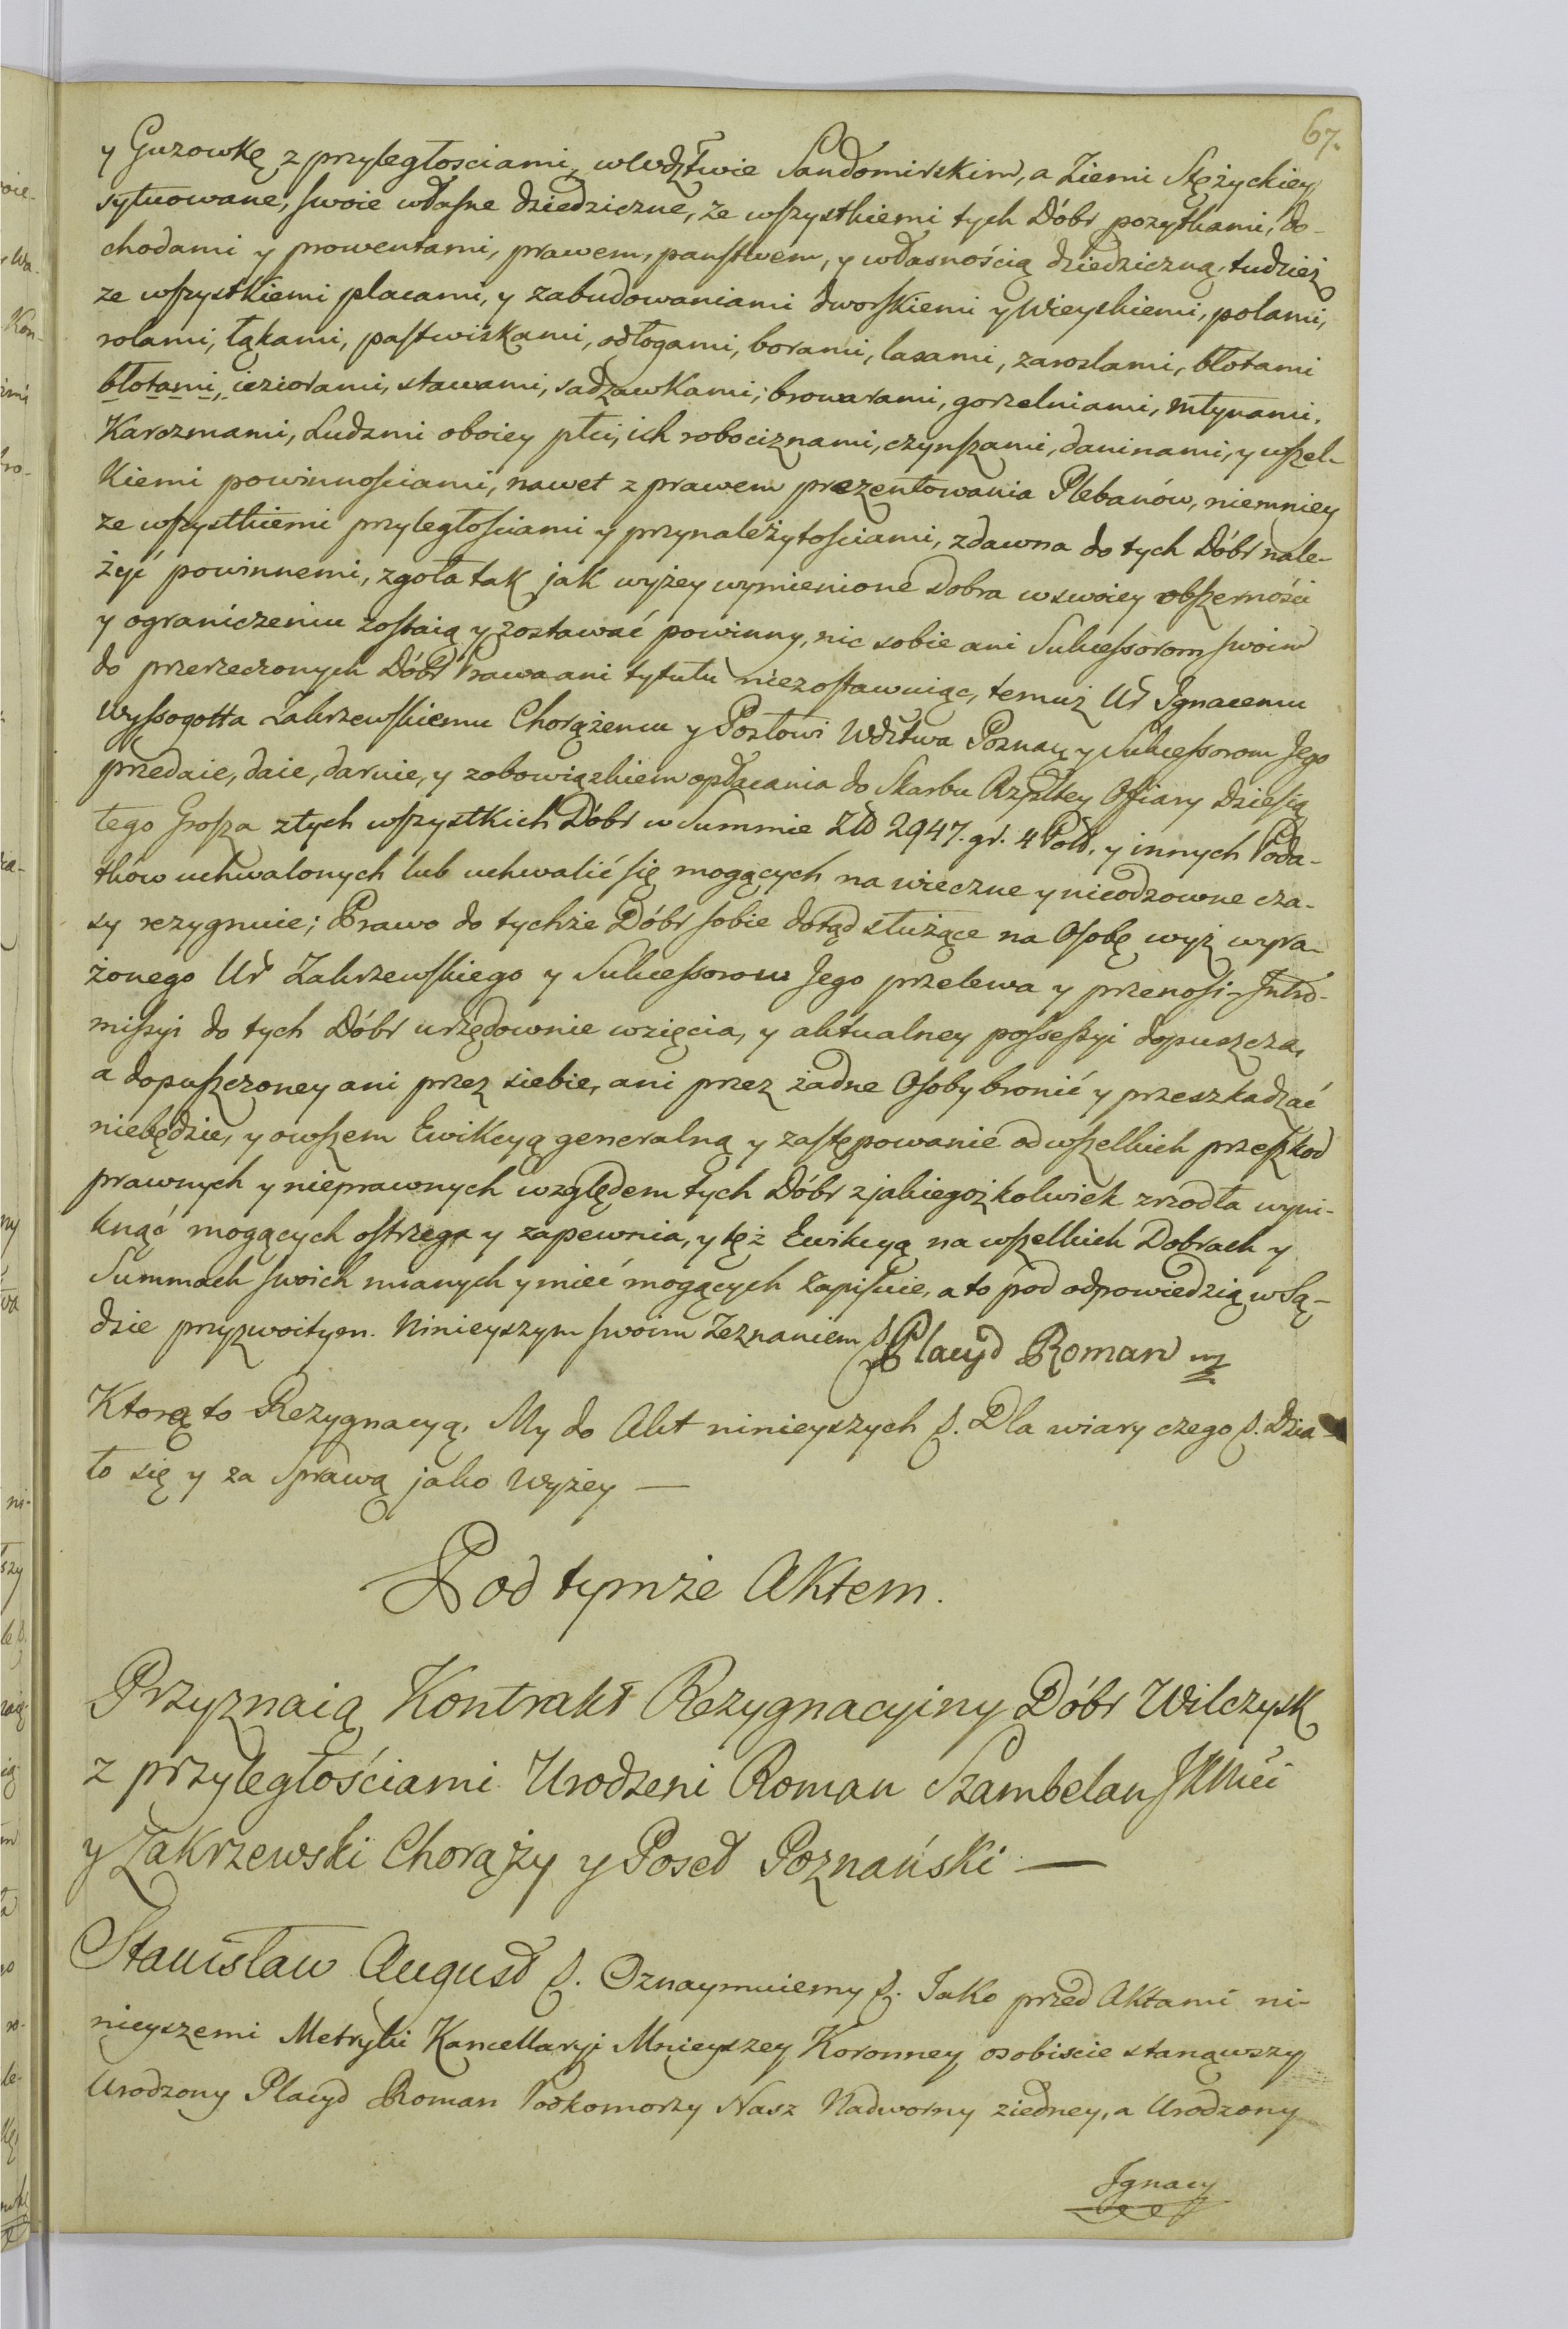 67.
y Guzowkę z przyległosciami, w Wdztwie Sandomirskim, a Ziemi Stężyckiey
sytuowane, swoie własne dziedziczne, ze wszystkiemi tych Dóbr pozytkami, do-
chodami y prowentami, prawem, panstwem, y własnością dziedziczną, tudzież
ze wszystkiemi placami, y zabudowaniami dworskiemi y Wieyskiemi, polami,
rolami, łąkami, pastwiskami, odłogami, borami, lasami, zaroslami, błotami
błotami, ieziorami, stawami, sadzawkami, browarami, gorzelniami, Młynami,
Karczmami, Ludzmi oboiey płci, ich robociznami, czynszami, daninami, y wszel-
kiemi powinnosciami, nawet z prawem prezentowania Plebanów, niemniey
ze wszystkiemi przyległosciami y przynależytosciami, zdawna do tych Dóbr nale-
żyć powinnemi, zgoła tak jak wyżey wymienione Dobra w swoiey obszerności
y ograniczeniu zostaią y zostawać powinny, nic sobie ani Sukcessorom swoim
do przerzeczonych Dóbr Prawa ani tytułu niezostawuiąc, temuż Ur Ignacemu
Wyssogotta Zakrzewskiemu Chorążemu y Posłowi Wdztwa Poznań y Sukcessorom Jego
przedaie, daie, daruie, y z obowiązkiem opłacania do Skarbu Rzpltey Ofiary dziesią
tego Grosza z tych wszystkich Dóbr w Summie Złł 2947. gr. 4 Poll, y innych Poda-
tków uchwalonych lub uchwalić się mogących na wieczne y nieodzowne cza-
sy rezygnuie; Prawo do tychże Dóbr sobie dotąd służące na Osobę wyż wyra-
żonego Ur Zakrzewskiego y Sukcessorow Jego przelewa y przenosi, Intro-
missyi do tych Dóbr urzędownie wzięcia, y aktualney possessyi dopuszcza,
a dopuszczoney ani przez siebie, ani przez żadne Osoby bronić y przeszkadzać
niebędzie, y owszem Ewikcyą generalną y zastępowanie od wszelkich przeszkod
prawnych y nieprawnych względem tych Dóbr z jakiegoż kolwiek zrzodła wyni-
knąć mogących ostrzega y zapewnia, y tęż Ewikcyą na wszelkich Dobrach y
Summach swoich mianych y mieć mogących zapisuie, a to pod odpowiedzią w Są-
dzie przyzwoitym. Ninieyszym swoim Zeznaniem Placyd Roman mp
Ktorę to Rezygnacyą, My do Akt ninieyszych &. Dla wiary czego &. Dzia-
ło się y za Sprawą jako Wyżey —
Pod tymże Aktem.
Przyznaią Kontrakt Rezygnacyiny Dóbr Wilczysk
z przyległościami Urodzeni Roman Szambelan JKMci
y Zakrzewski Chorąży y Poseł Poznański —
Stanisław August &. Oznaymuiemy &. Jako przed Aktami ni-
nieyszemi Metryki Kancellaryi Mnieyszey Koronney osobiscie stanąwszy
Urodzony Placyd Roman Podkomorzy Nasz Nadworny z iedney, a Urodzony
Ignacy